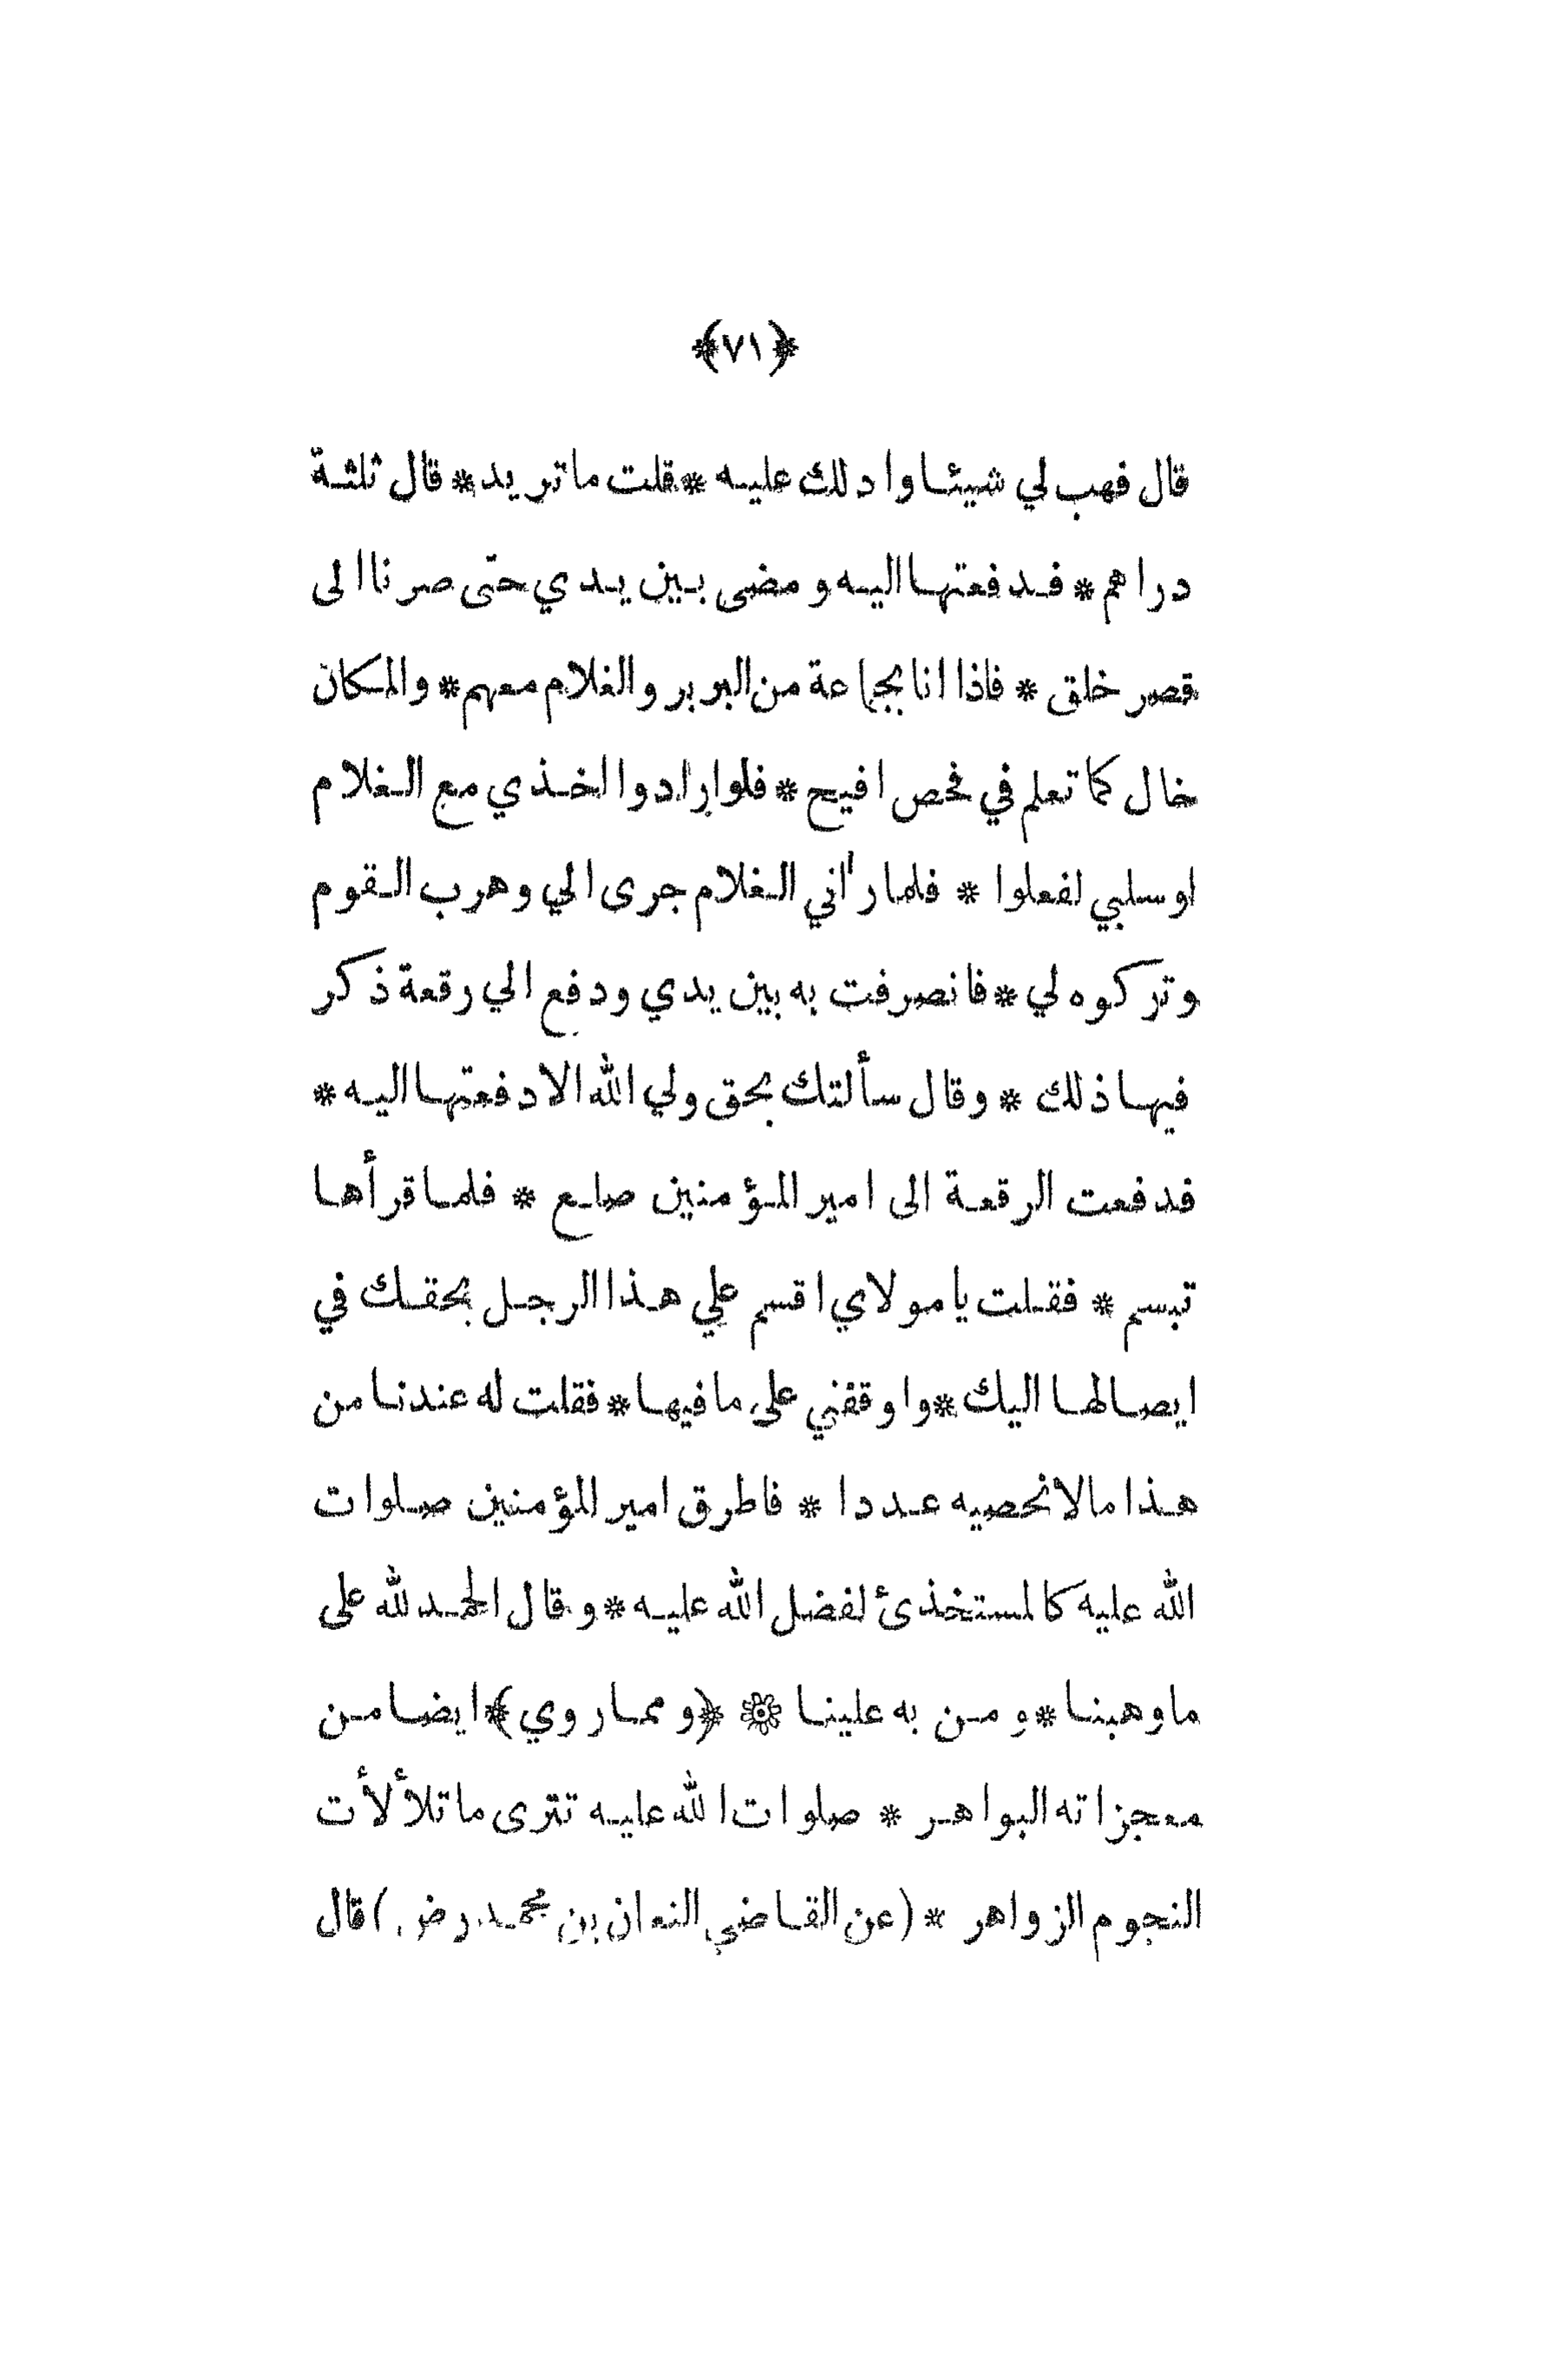 ﴿٧١﴾
قال فهب لي شيئا وادلك عليه * قلت ما تريد * قال ثلثة
دراهم * فدفعتها اليه و مضى بين يدي حتى صرنا الى
قصر خلق * فاذا انا بجماعة من البربر والغلام معهم * والمكان
خال كما تعلم في فحص افيح * فلو ارادوا اخذي مع الغلام
او سلبي لفعلوا * فلما رآني الغلام جرى الي وهرب القوم
وتركوه لي * فانصرفت به بين يدي ودفع الي رقعة ذكر
فيها ذلك * وقال سألتك بحق ولي الله الا دفعتها اليه *
فدفعت الرقعة الى امير المؤمنين صلع * فلما قرأها
تبسم * فقلت يا مولاي اقسم علي هذا الرجل بحقك في
ايصالها اليك * واوقفني على ما فيها * فقلت له عندنا من
هذا ما لا نحصيه عددا * فاطرق امير المؤمنين صلوات
الله عليه كالمستخذئ لفضل الله عليه * وقال الحمد لله على
ما وهبنا * و من به علينا ۞ ﴿و مما روي﴾ ايضا من
معجزاته البواهر * صلوات الله عليه تترى ما تلألأت
النجوم الزواهر * (عن القاضي النعمان بن محمد رض) قال